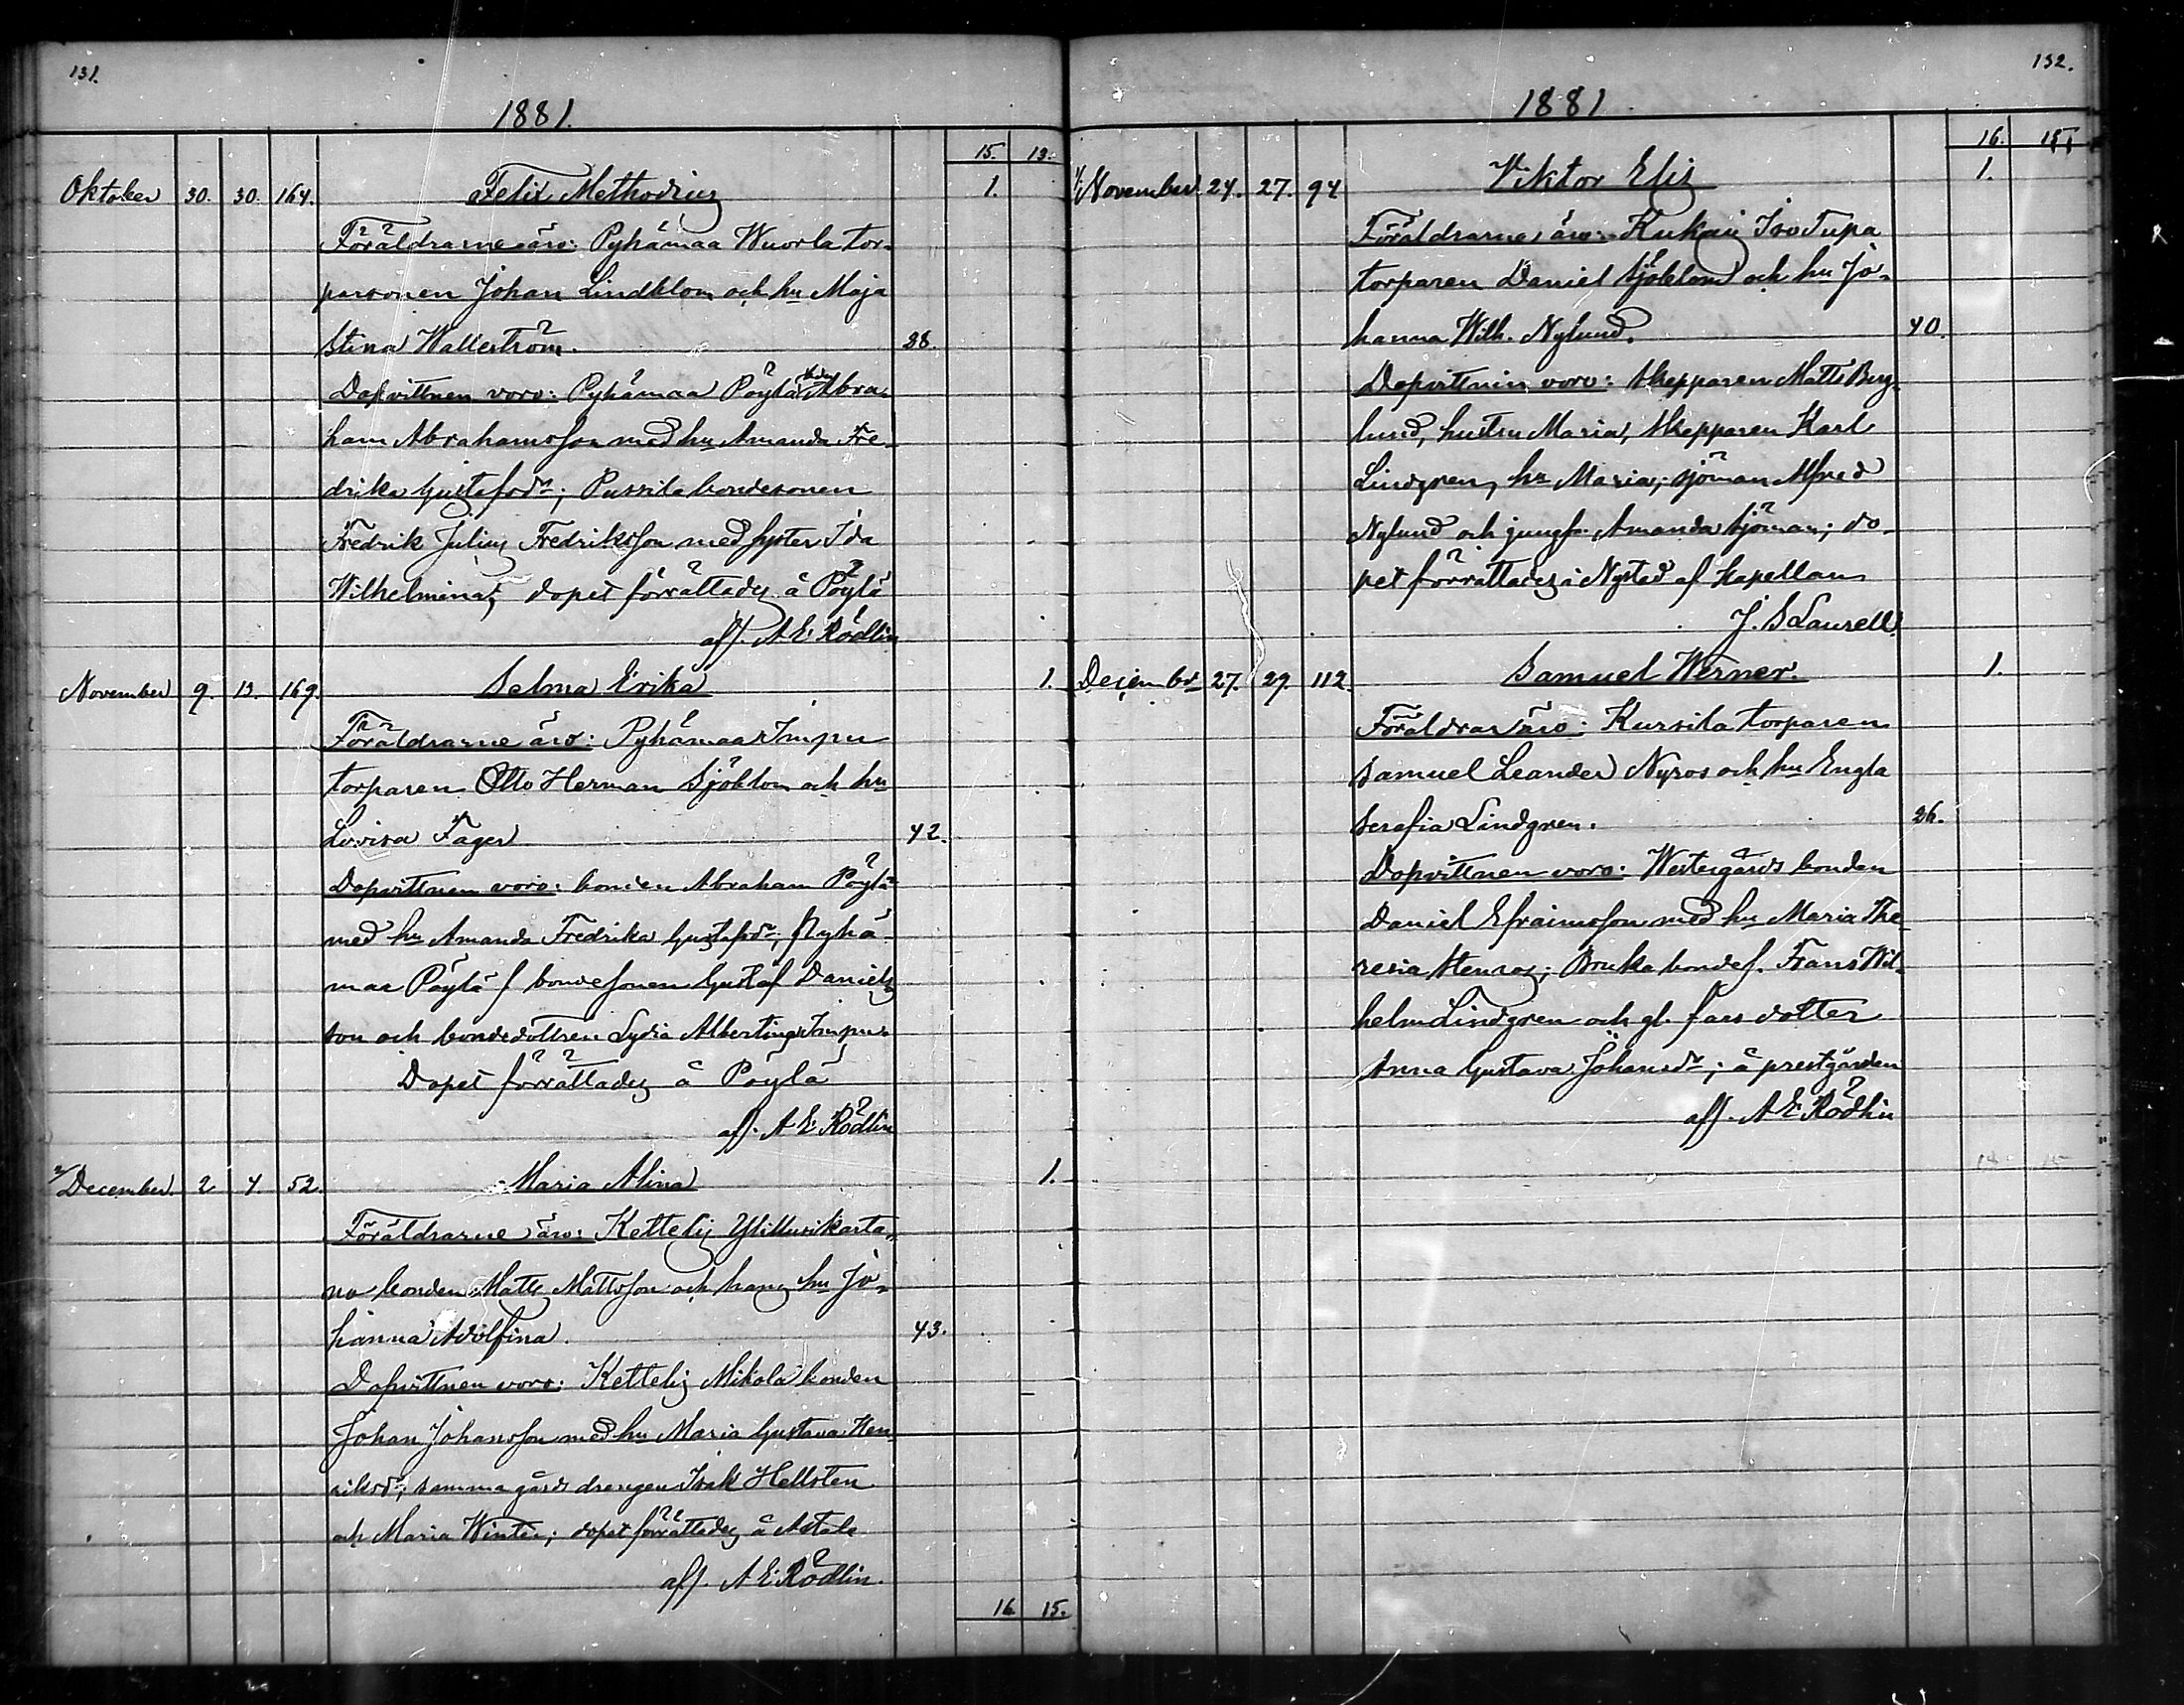 131.
1881.
15. 13.
Oktober 30. 30. 164. Felix Methodius 1.
Föräldrarne äro: Pyhämaa Wuorla tor-
parsonen Johan Lindblom och hu Maja
Stina Wallström. 28.
Dopvittnen voro: Pyhämaa Pöylä bonden Abra-
ham Abrahamsson med hu Amanda Fre-
drika Gustafsdr; Pussila bondesonen
Fredrik Julius Fredriksson med syster Ida
Wilhelmina; dopet förrättades å Pöylä
aff. A E Rödlin
November 9. 13. 169. Selma Erika 1.
Föräldrarne äro: Pyhämaa Impu
torparen Otto Herman Sjöblom och hu
Lovisa Fager 42.
Dopvittnen voro: bonden Abraham Pöylä
med hu Amanda Fredrika Gustafsdr; Pyhä-
maa Pöylä f bondesonen Gustaf Daniels
son och bondedottren Lydia Albertina Impu.
Dopet förrättades å Pöylä
aff. A E Rödlin
December. 2 4. 52. Maria Alina 1.
Föräldrarne äro: Kettelig Ylillusikarta-
no bonden Matts Mattsson och hans hu Jo-
hanna Adolfina. 43.
Dopvittnen voro: Kettelig Mikola bonden
Johan Johansson med hu Maria Gustava Hen-
riksdr; samma gårds drengen Isak Hellsten
och Maria Winter; dopet förrättades å
aff. A E Rödlin.
16 15.
132.
1881.
16. 15
November 24. 27. 94 Viktor Elis 1.
Föräldrarne äro: Kukain Isotupa
torparen Daniel Sjöblom och hu Jo-
hanna Wilh. Nylund. 40.
Dopvittnen voro: Skepparen Matts Berg-
lund, hustru Maria, Skepparen Karl
Lindgren, hu Maria; sjöman Alfred
Nylund och jungfr. Amanda Sjöman; do-
pet förrättades i Nystad af Kapellan
J. S Laurell.
December 27. 29. 112. Samuel Werner. 1.
Föräldrar äro: Kursila torparen
Samuel Leander Nyros och hu Engla
Serafia Lindgren. 26.
Dopvittnen voro: Westergårds bonden
Daniel Efraimsson med hu Maria The
resia Stenros; Bruka bondes. Frans Wil-
helm Lindgren och gl. fars dotter
Anna Gustava Johansdr; å prestgården
aff. A E Rödlin
14 15